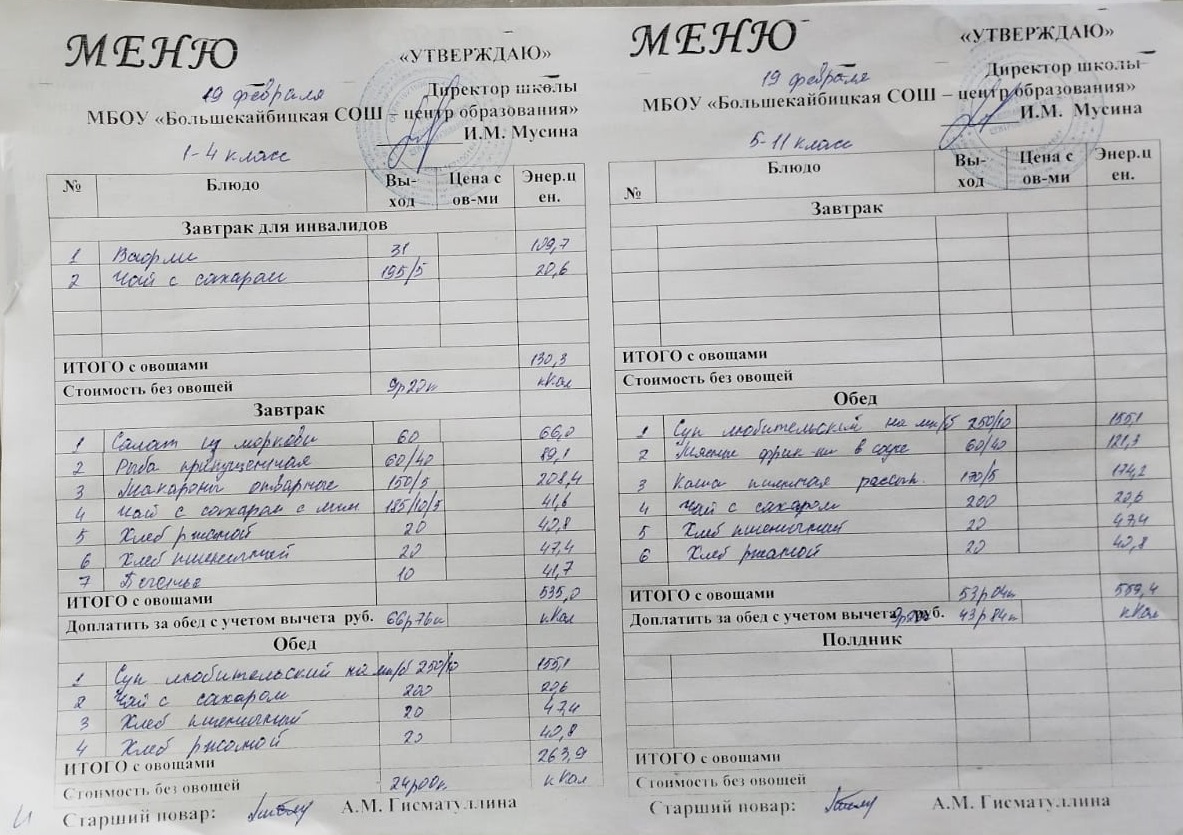 МЕНЮ
«УТВЕРЖДАЮ»
19 февраля
Директор школы
МБОУ «Большекайбицкая СОШ – центр образования»
И.М. Мусина
1-4 класс
№ Блюдо Вы-ход Цена с ов-ми Энер.ц ен.
Завтрак для инвалидов
1 Вафли 31 109,7
2 Чай с сахаром 195/5 20,6
ИТОГО с овощами 130,3
Стоимость без овощей 9р20к кКал
Завтрак
1 Салат из моркови 60 66,0
2 Рыба припущенная 60/40 89,1
3 Макароны отварные 150/5 208,4
4 Чай с сахаром с лим 185/10/5 41,6
5 Хлеб ржаной 20 40,8
6 Хлеб пшеничный 20 47,4
7 Печенье 10 41,7
ИТОГО с овощами 535,0
Доплатить за обед с учетом вычета руб. 66р76к кКал
Обед
1 Суп любительский на мк/б 250/10 155,1
2 Чай с сахаром 200 20,6
3 Хлеб пшеничный 20 47,4
4 Хлеб ржаной 20 40,8
ИТОГО с овощами 263,9
Стоимость без овощей 24р00к кКал
Старший повар: А.М. Гисматуллина
МЕНЮ
«УТВЕРЖДАЮ»
19 февраля
Директор школы
МБОУ «Большекайбицкая СОШ – центр образования
И.М. Мусина
5-11 класс
№ Блюдо Вы-ход Цена с ов-ми Энер.ц ен.
Завтрак
ИТОГО с овощами
Стоимость без овощей
Обед
1 Суп любительский на мк/б 250/10 155,1
2 в соусе 60/40 121,3
3 Каша рассып. 170/5 174,2
4 Чай с сахаром 200 20,6
5 Хлеб пшеничный 20 47,4
6 Хлеб ржаной 20 40,8
ИТОГО с овощами 53р04к 559,4
Доплатить за обед с учетом вычета руб. 43р84к кКал
Полдник
ИТОГО с овощами
Стоимость без овощей
Старший повар: А.М. Гисматуллина